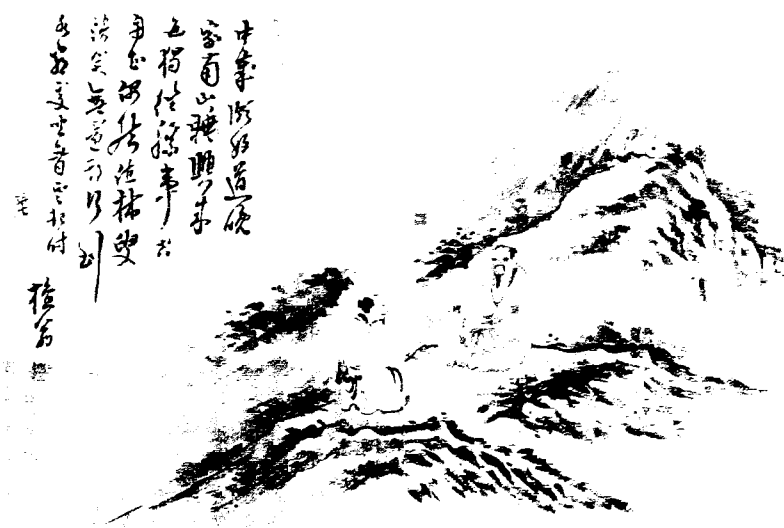 中歲頗好道晚
家南山陲興來
每獨往勝事空
自知偶然值林叟
談笑無還期行到
水窮處坐看雲起時